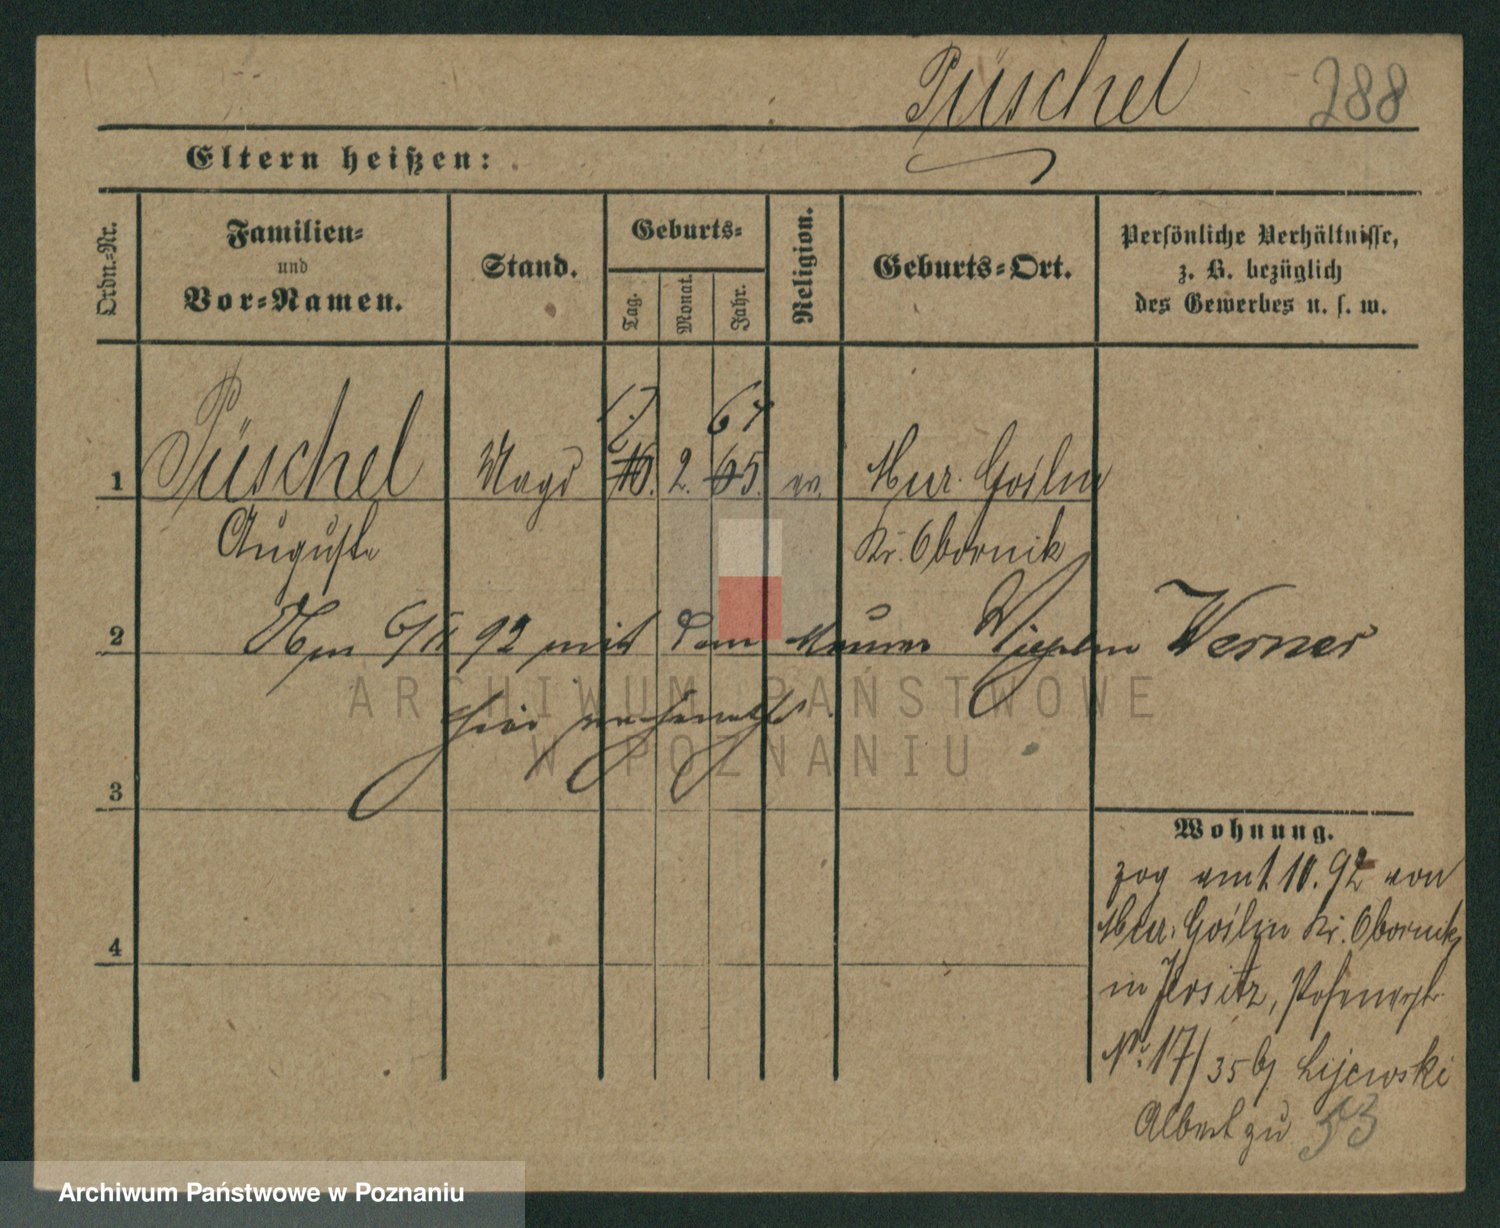 Püschel 288
Eltern heißen:
Ordn.-Nr.
Familien-
und
Vor-Namen.
Stand.
Geburts-
Tag.
Monat.
Jahr.
Religion.
Geburts-Ort.
Persönliche Verhältnisse,
z. B. bezüglich
des Gewerbes u. s. w.
17 67
1 Püschel Magd 10. 2. 65. ev. Mur. Goslin
Auguste Kr. Obornik
2 Am 6/II 92 mit dem Maurer Werner
hier
ARCHIWUM PAŃSTWOWE
W POZNANIU
3
Wohnung.
zog am 1.10.92 von
Mur. Goslin Kr. Obornik
4
in Jersitz, Posenerstr.
No. 17/35 bj Lijewski
Albert zu 53
Archiwum Państwowe w Poznaniu